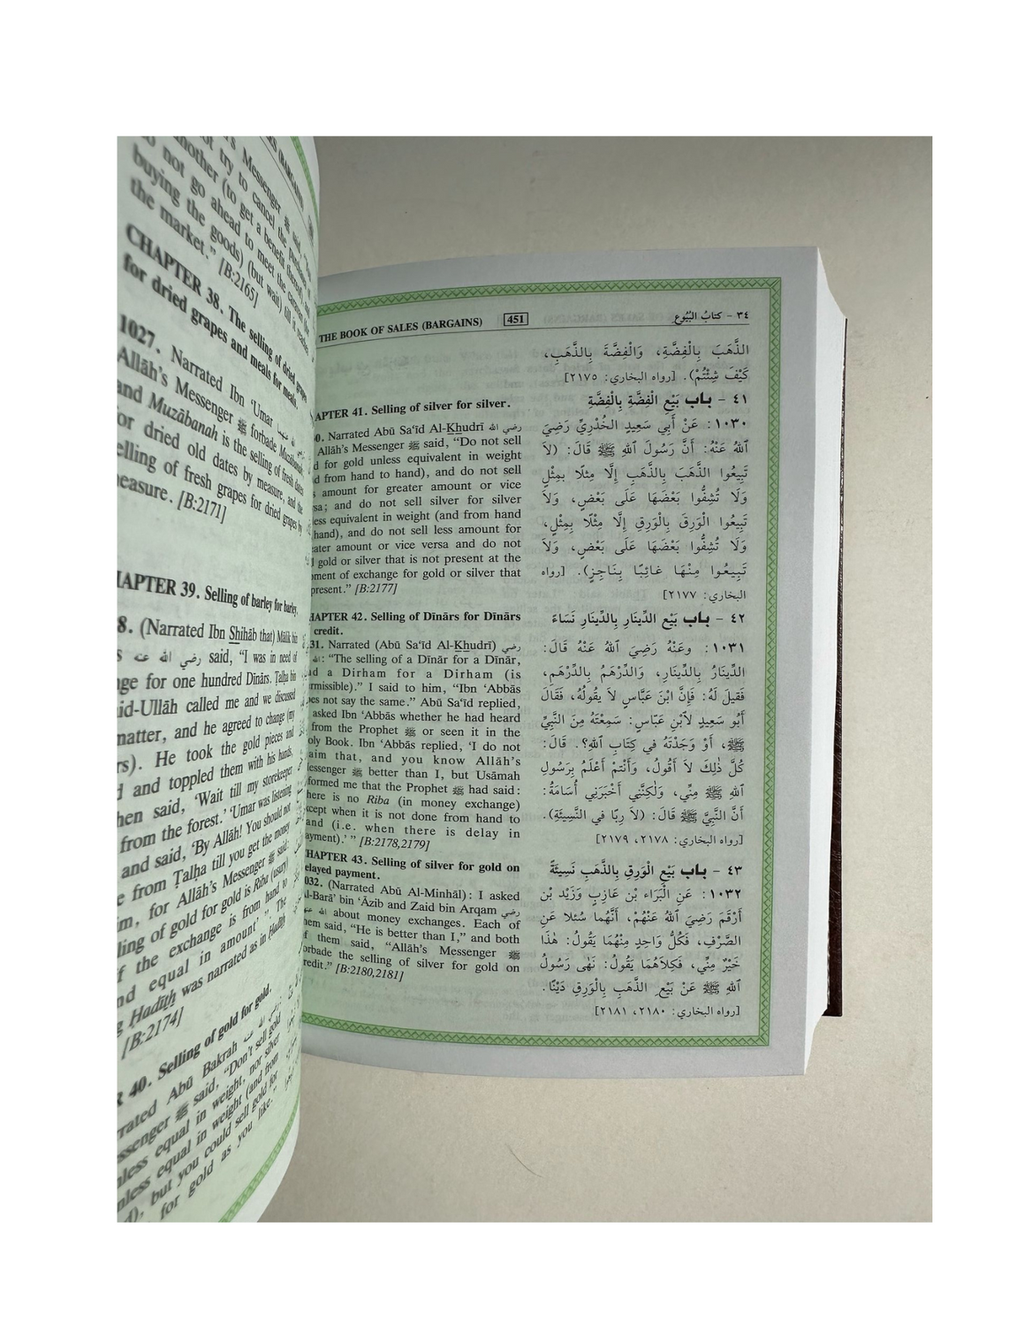 not try to cancel the
another (to get a benefit
not go ahead to meet the caravan
buying the goods) (but wait) till it
the market." [B:2165]
CHAPTER 38. The selling of dried grapes
for dried grapes and meals for meals.
1027. Narrated Ibn 'Umar
Allāh's Messenger ﷺ forbade Muzābanah
and Muzābanah is the selling of fresh dates
or dried old dates by measure, and the
selling of fresh grapes for dried grapes by
measure. [B:2171]
HAPTER 39. Selling of barley for barley.
8. (Narrated Ibn Shihāb that) Mālik bin
رضي الله عنه said, "I was in need of
nge for one hundred Dinārs. Ṭalḥa bin
aid-Ullāh called me and we discussed
matter, and he agreed to change (my
rs). He took the gold pieces and
d and toppled them with his hands,
hen said, 'Wait till my storekeeper
from the forest.' 'Umar was listening
and said, 'By Allāh! You should not
e from Ṭalḥa till you get the money
m, for Allāh's Messenger ﷺ said:
lling of gold for gold is Riba (usury)
f the exchange is from hand to
nd equal in amount' ". The
g Ḥadīth was narrated as in Ḥadīth
[B:2174]
R 40. Selling of gold for gold.
rrated Abū Bakrah
ssenger ﷺ said, "Don't sell gold
nless equal in weight, nor silver
nless equal in weight (and from
d), but you could sell gold for
for gold as you like."
THE BOOK OF SALES (BARGAINS) 451 ٣٤ - كتابُ البُيُوع
APTER 41. Selling of silver for silver.
0. Narrated Abū Sa'īd Al-Khudrī رضي الله
Allāh's Messenger ﷺ said, "Do not sell
d for gold unless equivalent in weight
d from hand to hand), and do not sell
s amount for greater amount or vice
sa; and do not sell silver for silver
less equivalent in weight (and from hand
hand), and do not sell less amount for
eater amount or vice versa and do not
l gold or silver that is not present at the
oment of exchange for gold or silver that
present." [B:2177]
HAPTER 42. Selling of Dīnārs for Dīnārs
credit.
31. Narrated (Abū Sa'īd Al-Khudrī) رضي
الله: "The selling of a Dīnār for a Dīnār,
nd a Dirham for a Dirham (is
rmissible)." I said to him, "Ibn 'Abbās
oes not say the same." Abū Sa'īd replied,
asked Ibn 'Abbās whether he had heard
from the Prophet ﷺ or seen it in the
oly Book. Ibn 'Abbās replied, 'I do not
aim that, and you know Allāh's
essenger ﷺ better than I, but Usāmah
formed me that the Prophet ﷺ had said:
here is no Riba (in money exchange)
xcept when it is not done from hand to
and (i.e. when there is delay in
ayment).' " [B:2178,2179]
HAPTER 43. Selling of silver for gold on
elayed payment.
032. (Narrated Abū Al-Minhāl): I asked
l-Barā' bin 'Āzib and Zaid bin Arqam رضي
الله about money exchanges. Each of
em said, "He is better than I," and both
f them said, "Allāh's Messenger ﷺ
orbade the selling of silver for gold on
redit." [B:2180,2181]
الذَّهَبَ بِالْفِضَّةِ، وَالْفِضَّةَ بِالذَّهَبِ،
كَيْفَ شِئْتُمْ). [رواه البخاري: ٢١٧٥]
٤١ - باب بَيْعِ الْفِضَّةِ بِالْفِضَّةِ
١٠٣٠: عَنْ أَبِي سَعِيدٍ الْخُدْرِيِّ رَضِيَ
اللهُ عَنْهُ: أَنَّ رَسُولَ اللهِ ﷺ قَالَ: (لاَ
تَبِيعُوا الذَّهَبَ بِالذَّهَبِ إِلَّا مِثْلًا بِمِثْلٍ
وَلَا تُشِفُّوا بَعْضَهَا عَلَى بَعْضٍ، وَلاَ
تَبِيعُوا الْوَرِقَ بِالْوَرِقِ إِلَّا مِثْلًا بِمِثْلٍ،
وَلَا تُشِفُّوا بَعْضَهَا عَلَى بَعْضٍ، وَلاَ
تَبِيعُوا مِنْهَا غَائِبًا بِنَاجِزٍ). [رواه
البخاري: ٢١٧٧]
٤٢ - باب بَيْعِ الدِّينَارِ بِالدِّينَارِ نَسَاءً
١٠٣١: وعَنْهُ رَضِيَ اللهُ عَنْهُ قَالَ:
الدِّينَارُ بِالدِّينَارِ، وَالدِّرْهَمُ بِالدِّرْهَمِ،
فَقِيلَ لَهُ: فَإِنَّ ابْنَ عَبَّاسٍ لَا يَقُولُهُ، فَقَالَ
أَبُو سَعِيدٍ لاِبْنِ عَبَّاسٍ: سَمِعْتَهُ مِنَ النَّبِيِّ
ﷺ، أَوْ وَجَدْتَهُ في كِتَابِ اللهِ؟. قَالَ:
كُلَّ ذٰلِكَ لاَ أَقُولُ، وَأَنْتُمْ أَعْلَمُ بِرَسُولِ
اللهِ ﷺ مِنِّي، وَلٰكِنَّنِي أَخْبَرَنِي أُسَامَةُ:
أَنَّ النَّبِيَّ ﷺ قَالَ: (لاَ رِبًا في النَّسِيئَةِ).
[رواه البخاري: ٢١٧٨، ٢١٧٩]
٤٣ - باب بَيْعِ الْوَرِقِ بِالذَّهَبِ نَسِيئَةً
١٠٣٢: عَنِ الْبَرَاء بْنِ عَازِبٍ وَزَيْدِ بْنِ
أَرْقَمَ رَضِيَ اللهُ عَنْهُمْ، أَنَّهُما سُئلا عَنِ
الصَّرْفِ، فَكُلُّ وَاحِدٍ مِنْهُمَا يَقُولُ: هٰذَا
خَيْرٌ مِنِّي، فَكِلاَهُمَا يَقُولُ: نَهَى رَسُولُ
اللهِ ﷺ عَنْ بَيْعِ الذَّهَبِ بِالْوَرِقِ دَيْنًا.
[رواه البخاري: ٢١٨٠، ٢١٨١]